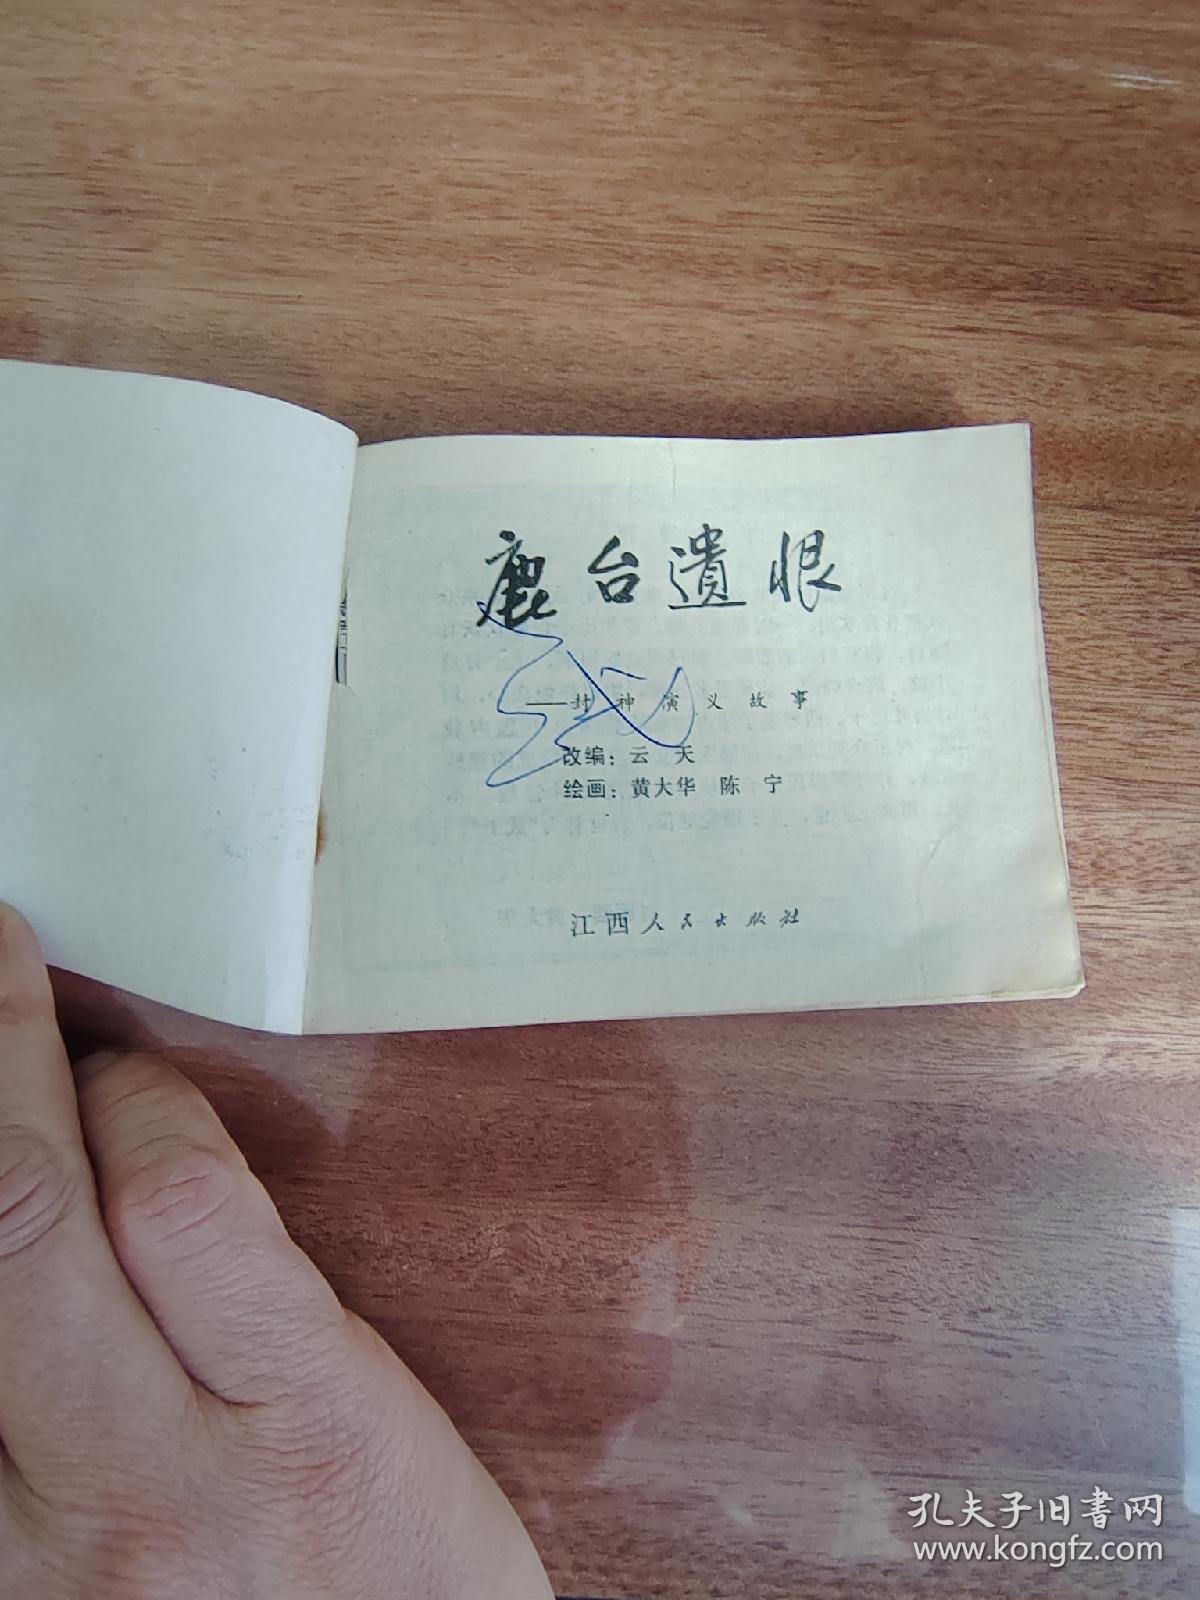 鹿台遗恨
——封神演义故事
改编：云天
绘画：黄大华 陈宁
江西人民出版社
孔夫子旧书网
www.kongfz.com